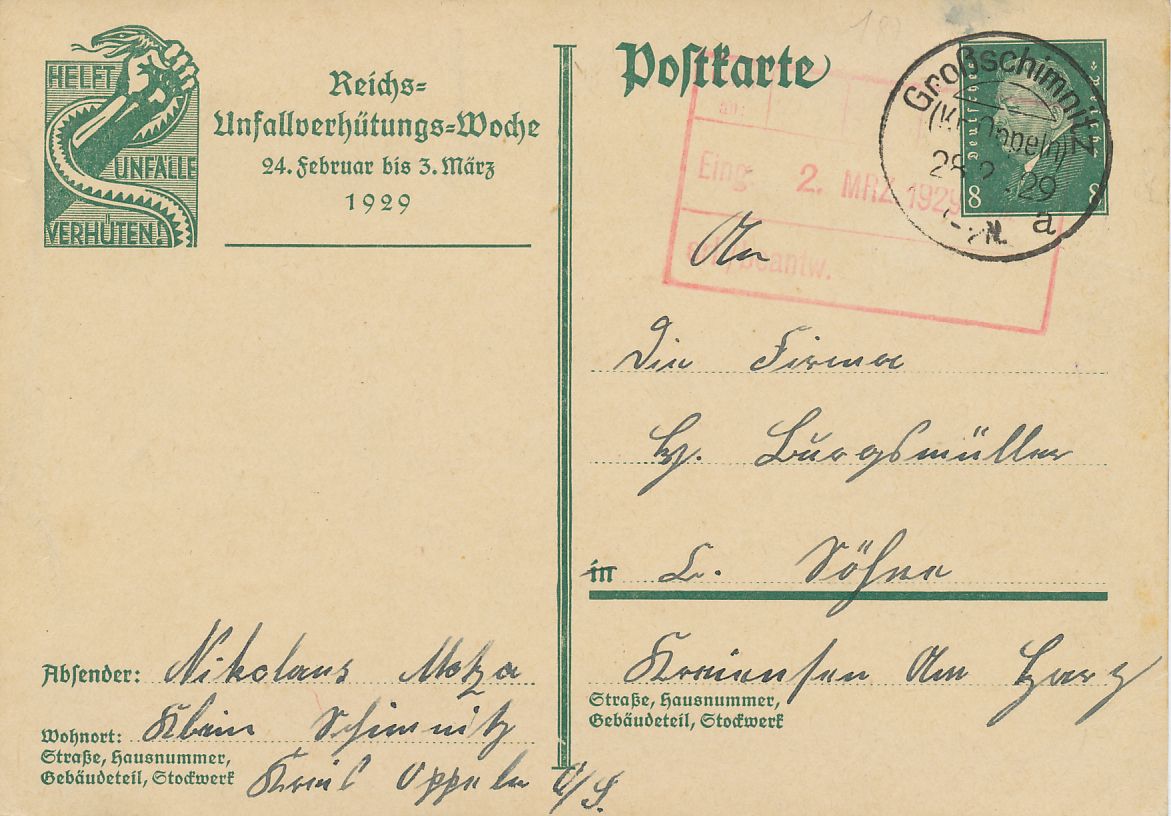 HELFT
UNFÄLLE
VERHÜTEN!
Reichs-
Unfallverhütungs-Woche
24. Februar bis 3. März
1929
Postkarte
Deutsches Reich
8 8
Großschimnitz
(Kr. Oppeln)
28.2.29
a
Eing. 2. MRZ. 1929
beantw.
An
Die Firma
H. Burgsmüller
in
&. Söhne
Kreiensen Am Harz
Straße, Hausnummer,
Gebäudeteil, Stockwerk
Absender: Nikolaus Motza
Wohnort: Klein Schimnitz
Straße, Hausnummer,
Gebäudeteil, Stockwerk
Kreis Oppeln O/S.